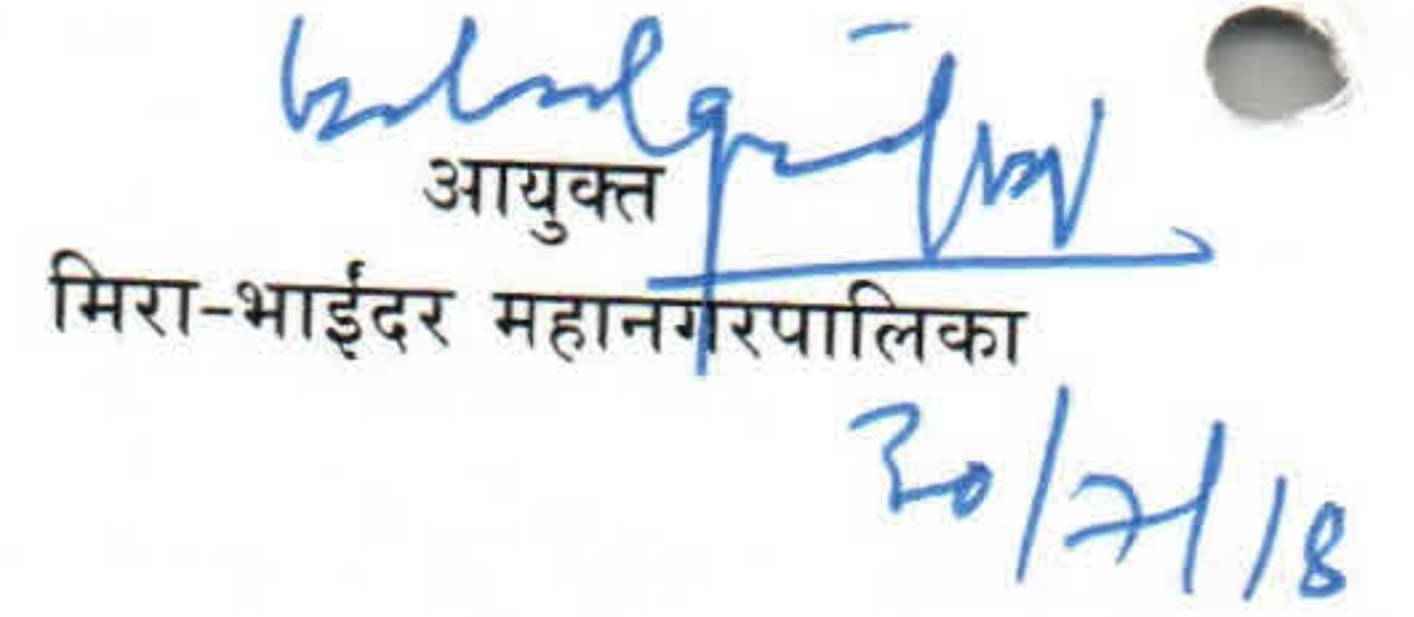 आयुक्त
मिरा-भाईंदर महानगरपालिका
30/7/18